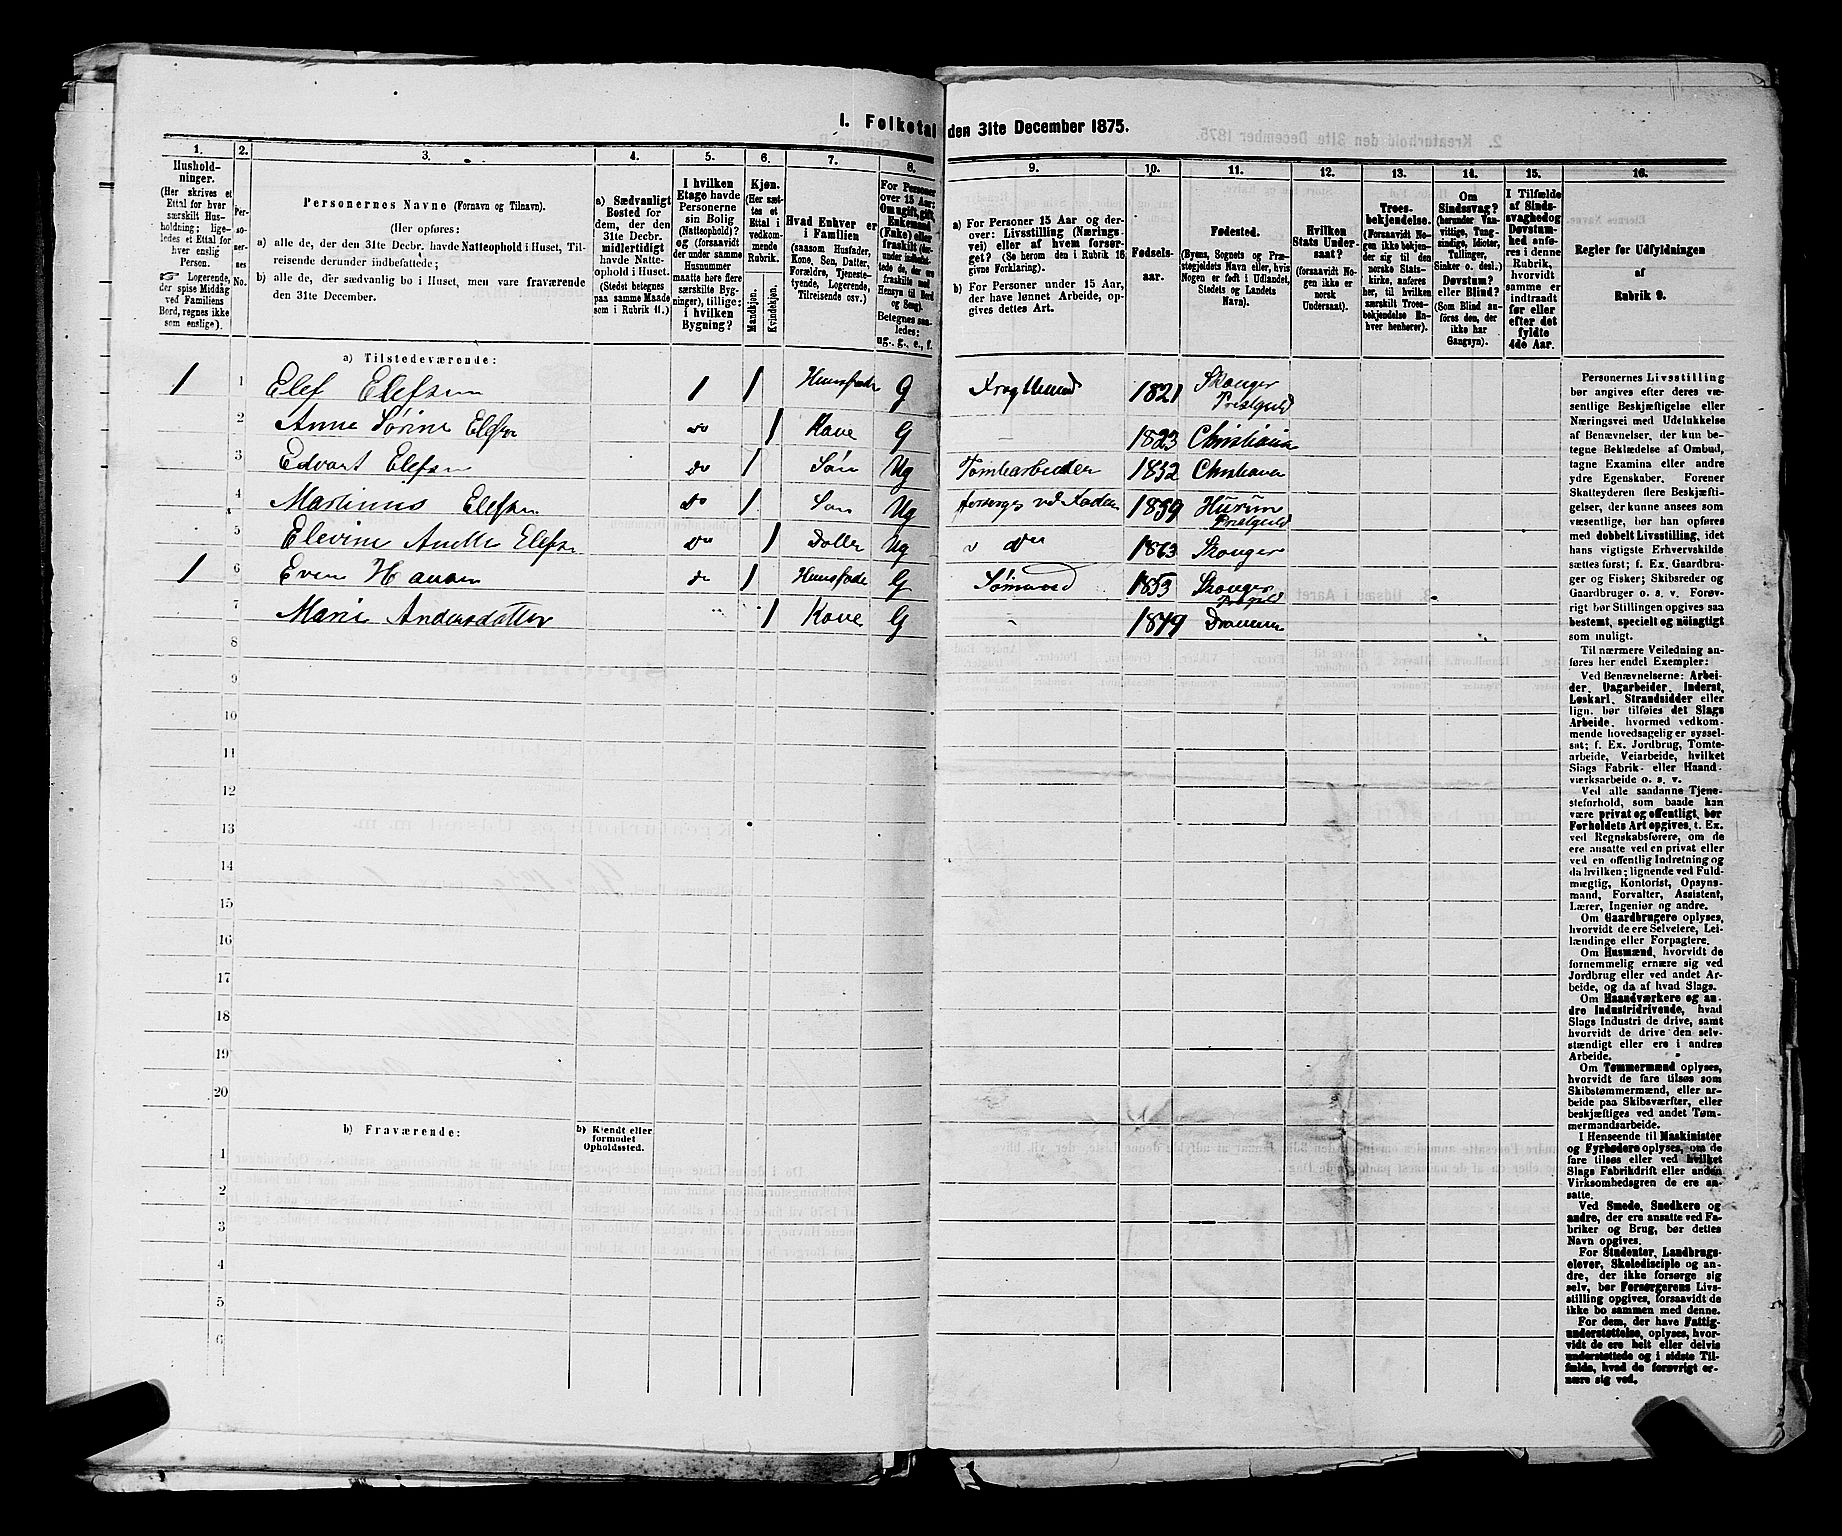 1. Folketal den 31te December 1875.
1. 2. 3. 4. 5. 6. 7. 8. 9. 10. 11. 12. 13. 14. 15. 16.
Hushold-
ninger.
(Her skrives et
Ettal for hver
særskilt Hus-
holdning; lige-
ledes et Ettal for
hver enslig
Person.
☞ Logerende,
der spise Middag
ved Familiens
Bord, regnes ikke
som enslige).
Per-
so-
ner-
nes
No.
Personernes Navne (Fornavn og Tilnavn).
(Her opføres:
a) alle de, der den 31te Decbr. havde Natteophold i Huset, Til-
reisende derunder indbefattede;
b) alle de, der sædvanlig bo i Huset, men vare fraværende
den 31te December.
a) Sædvanligt
Bosted for
dem, der den
31te Decbr.
midlertidigt
havde Natte-
ophold i Huset.
(Stedet betegnes
paa samme Maade
som i Rubrik 11.)
I hvilken
Etage havde
Personerne
sin Bolig
(Natteophold)?
og (forsaavidt
der under samme
Husnummer
maatte høre flere
særskilte Byg-
ninger), tillige:
i hvilken
Bygning?
Kjøn.
(Her sæt-
tes et
Ettal i
vedkom-
mende
Rubrik.
Mandkjøn.
Kvindekjøn.
Hvad Enhver er
i Familien
(saasom Husfader,
Kone, Søn, Datter,
Forældre, Tjeneste-
tyende, Logerende,
Tilreisende osv.)
For Personer
over 15 Aar:
Om ugift, gift,
Enkemand
(Enke) eller
fraskilt (der-
under indbefat-
tede de, der ere
fraskilte med
Hensyn til Bord
og Seng).
Betegnes saa-
ledes:
ug., g., e., f.
a) For Personer 15 Aar og der-
over: Livsstilling (Nærings-
vei) eller af hvem forsør-
get? (Se herom den i Rubrik 16
givne Forklaring).
b) For Personer under 15 Aar,
der have lønnet Arbeide, op-
gives dettes Art.
Fødsels-
aar.
Fødested.
(Byens, Sognets og Præ-
stegjeldets Navn eller, hvis
Nogen er født i Udlandet,
Stedets og Landets
Navn).
Hvilken
Stats Under-
saat?
(forsaavidt No-
gen ikke er
norsk
Undersaat).
Troes-
bekjendelse.
(Forsaavidt No-
gen ikke bekjen-
der sig til den
norske Stats-
kirke, anføres
her, til hvilken
særskilt Troes-
bekjendelse En-
hver henhører).
Om
Sindssvag?
(herunder Van-
vittige, Tung-
sindige, Idioter,
Tullinger,
Sinker o. desl.)
Døvstum?
eller Blind?
(Som Blind an-
føres den, der
ikke har
Gangsyn).
I Tilfælde
af Sinds-
svaghed og
Døvstum-
hed anfø-
res i denne
Rubrik,
hvorvidt
samme er
indtraadt
før eller
efter det
fyldte
4de Aar.
Regler for Udfyldningen
af
Rubrik 9.
a) Tilstedeværende:
1 1 Elef Elefsen 1 1 Huusfader G 1821 Skouger Præstgield
2 Anne Sørine Elefsen do 1 Kone G - 1823 Christiania
3 Edvart Elefsen do 1 Søn Ug Tomtearbeider 1852 Christiania
4 Martinus Elefsen do 1 Søn Ug forsørges ved Faderen 1859 Hurum Præstgield
5 Elevine Anette Elefsen do 1 Datter Ug do 1863 Skouger
1 6 Even Hansen do 1 Huusfader G Sømand 1853 Skouger Præstgield
7 Marie Andersdatter 1 Kone G - 1849 Drammen
8
9
10
11
12
13
14
15
16
17
18
19
20
b) Fraværende:
b) Kjendt eller
formodet
Opholdssted.
1
2
3
4
5
6
Personernes Livsstilling
bør angives efter deres væ-
sentlige Beskjæftigelse eller
Næringsvei med Udelukkelse
af Benævnelser, der kun be-
tegne Beklædelse af Ombud,
tagne Examina eller andre
ydre Egenskaber. Forener
Skatteyderen flere Beskjæfti-
gelser, der kunne ansees som
væsentlige, bør han opføres
med dobbelt Livsstilling, idet
hans vigtigste Erhvervskilde
sættes først; f. Ex. Gaardbru-
ger og Fisker; Skibsreder og
Gaardbruger o. s. v. Forøv-
rigt bør Stillingen opgives saa
bestemt, specielt og nöiagtigt
som muligt.
Til nærmere Veiledning an-
føres her endel Exempler:
Ved Benævnelserne: Arbei-
der, Dagarbeider, Inderst,
Løskarl, Strandsidder eller
lign. bør tilføies det Slags
Arbeide, hvormed vedkom-
mende hovedsagelig er syssel-
sat; f. Ex. Jordbrug, Tomte-
arbeide, Veiarbeide, hvilket
Slags Fabrik- eller Haand-
værksarbeide o. s. v.
Ved alle saadanne Tjene-
steforhold, som baade kan
være privat og offentligt, bør
Forholdets Art opgives, t. Ex.
ved Regnskabsførere, om de
ere ansatte ved en privat eller
ved en offentlig Indretning og
da hvilken; lignende ved Fuld-
mægtig, Kontorist, Opsyns-
mand, Forvalter, Assistent,
Lærer, Ingeniør og andre.
Om Gaardbrugere oplyses,
hvorvidt de ere Selveiere, Lei-
lændinge eller Forpagtere.
Om Husmænd, hvorvidt de
fornemmelig ernære sig ved
Jordbrug eller ved andet Ar-
beide, og da af hvad Slags.
Om Haandværkere og an-
dre Industridrivende, hvad
Slags Industri de drive, samt
hvorvidt de drive den selv-
stændigt eller ere i andres
Arbeide.
Om Tømmermænd oplyses,
hvorvidt de fare tilsøs som
Skibstømmermænd, eller ar-
beide paa Skibsværfter, eller
beskjæftiges ved andet Tøm-
mermandsarbeide.
I Henseende til Maskinister
og Fyrbødere oplyses, om de
fare tilsøs eller ved hvilket
Slags Fabrikdrift eller anden
Virksomhedsgren de ere an-
satte.
Ved Smede, Snedkere og
andre, der ere ansatte ved Fa-
briker og Brug, bør dettes
Navn opgives.
For Studenter, Landbrugs-
elever, Skoledisciple og an-
dre, der ikke forsørge sig
selv, bør Forsørgerens Livs-
stilling opgives, forsaavidt de
ikke bo sammen med denne.
For dem, der have Fattig-
understøttelse, oplyses, hvor-
vidt de ere helt eller delvis
understøttede og i sidste Til-
fælde, hvad de forøvrigt er-
nære sig ved.